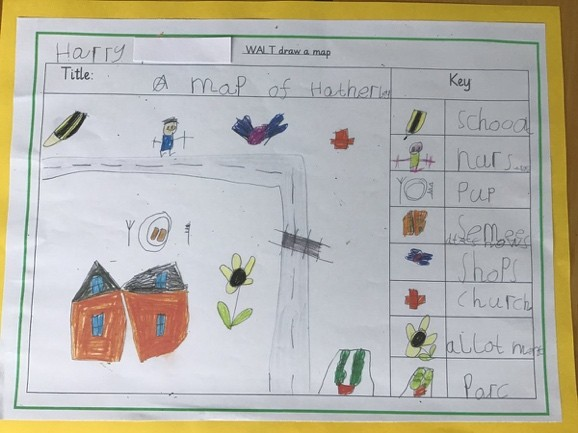 Harry
WALT draw a map
Title:
A map of Hathern
Key
school
nars
Pup
shops
church
allot
Parc